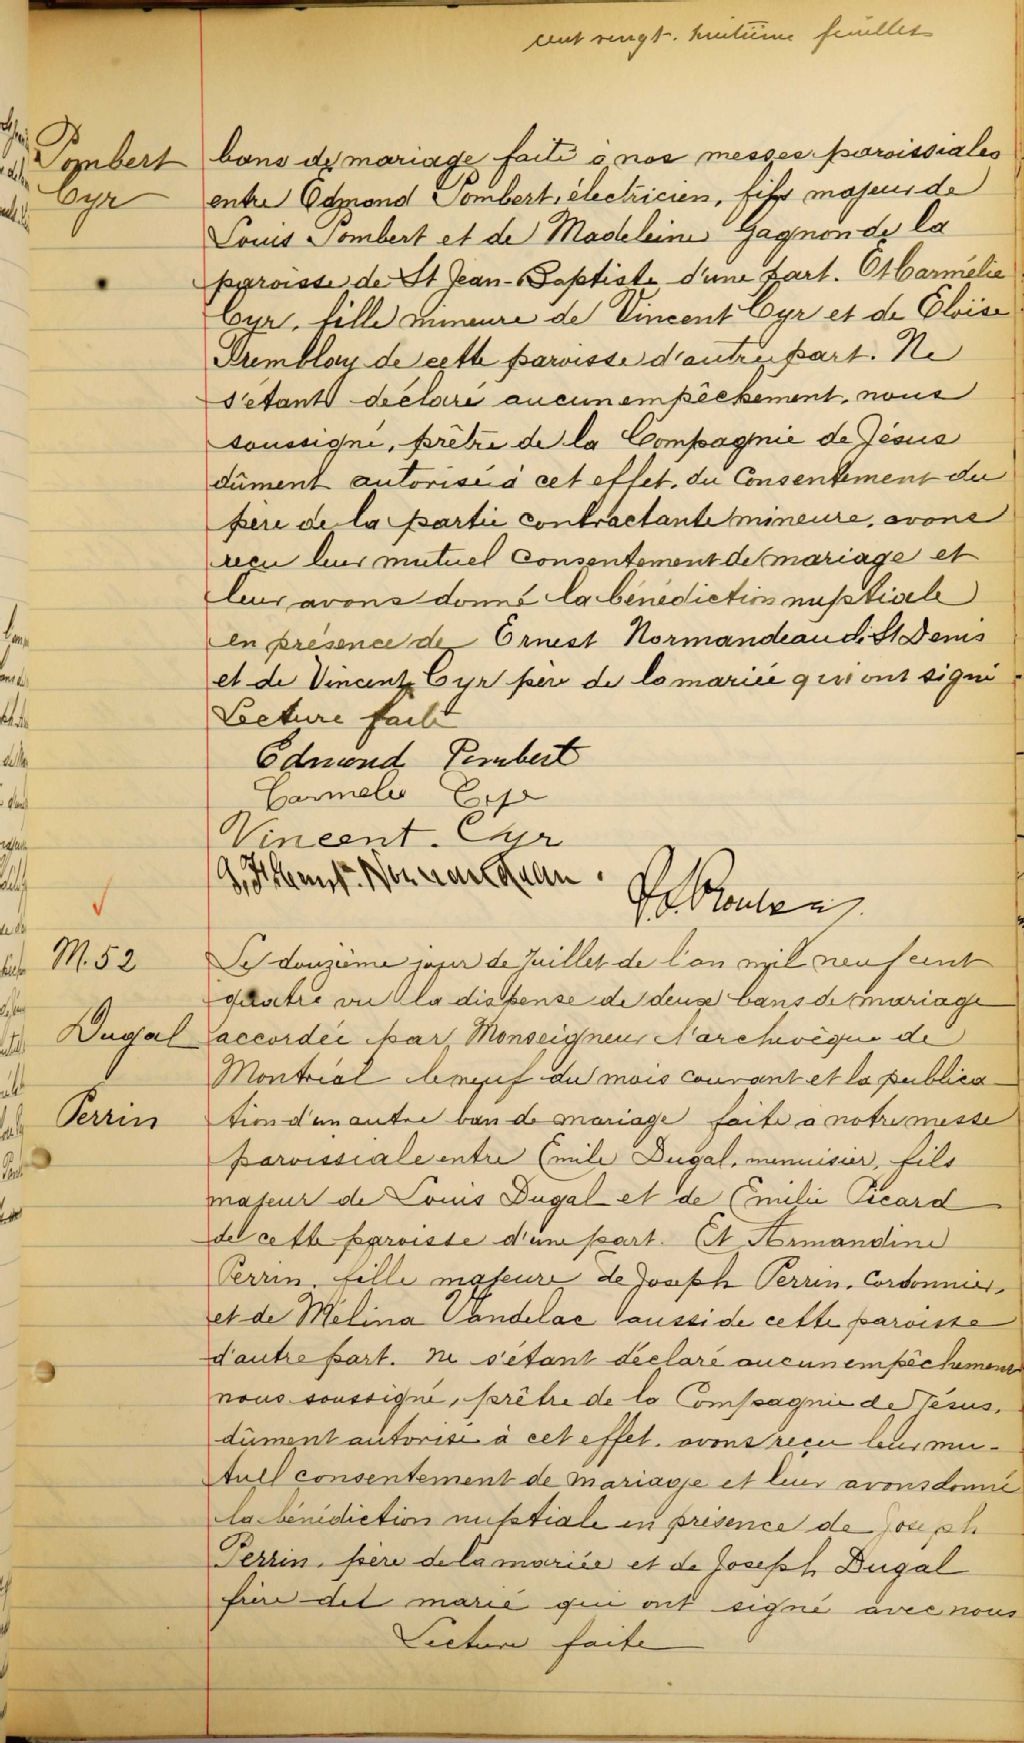 cent vingt-huitième feuillet
Pombert
Cyr
bans de mariage faite à nos messes paroissiales
entre Edmond Pombert, électricien, fils majeur de
Louis Pombert et de Madeleine Gagnon de la
paroisse de St Jean-Baptiste d'une part. Et Carmélie
Cyr, fille mineure de Vincent Cyr et de Eloïse
Tremblay de cette paroisse d'autre part. Ne
s'étant déclaré aucun empêchement, nous
soussigné, prêtre de la Compagnie de Jésus
dûment autorisé à cet effet, du Consentement du
père de la partie contractante mineure, avons
reçu leur mutuel consentement de mariage et
leur avons donné la bénédiction nuptiale
en présence de Ernest Normandeau de St Denis
et de Vincent Cyr père de la mariée qui ont signé
Lecture faite
Edmond Pombert
Carmelie Cyr
Vincent. Cyr
Normandeau.
M. 52
Dugal
Perrin
Le douzième jour de Juillet de l'an mil neuf cent
quatre vu la dispense de deux bans de mariage
accordée par Monseigneur l'archevêque de
Montréal le neuf du mois courant et la publica-
tion d'un autre ban de mariage faite à notre messe
paroissiale entre Emile Dugal, menuisier, fils
majeur de Louis Dugal et de Emilie Picard
de cette paroisse d'une part. Et Armandine
Perrin, fille majeure de Joseph Perrin, Cordonnier,
et de Mélina Vandelac aussi de cette paroisse
d'autre part. Ne s'étant déclaré aucun empêchement
nous soussigné, prêtre de la Compagnie de Jésus,
dûment autorisé à cet effet, avons reçu leur mu-
tuel consentement de mariage et leur avons donné
la bénédiction nuptiale en présence de Joseph
Perrin, père de la mariée et de Joseph Dugal
frère del marié qui ont signé avec nous
Lecture faite